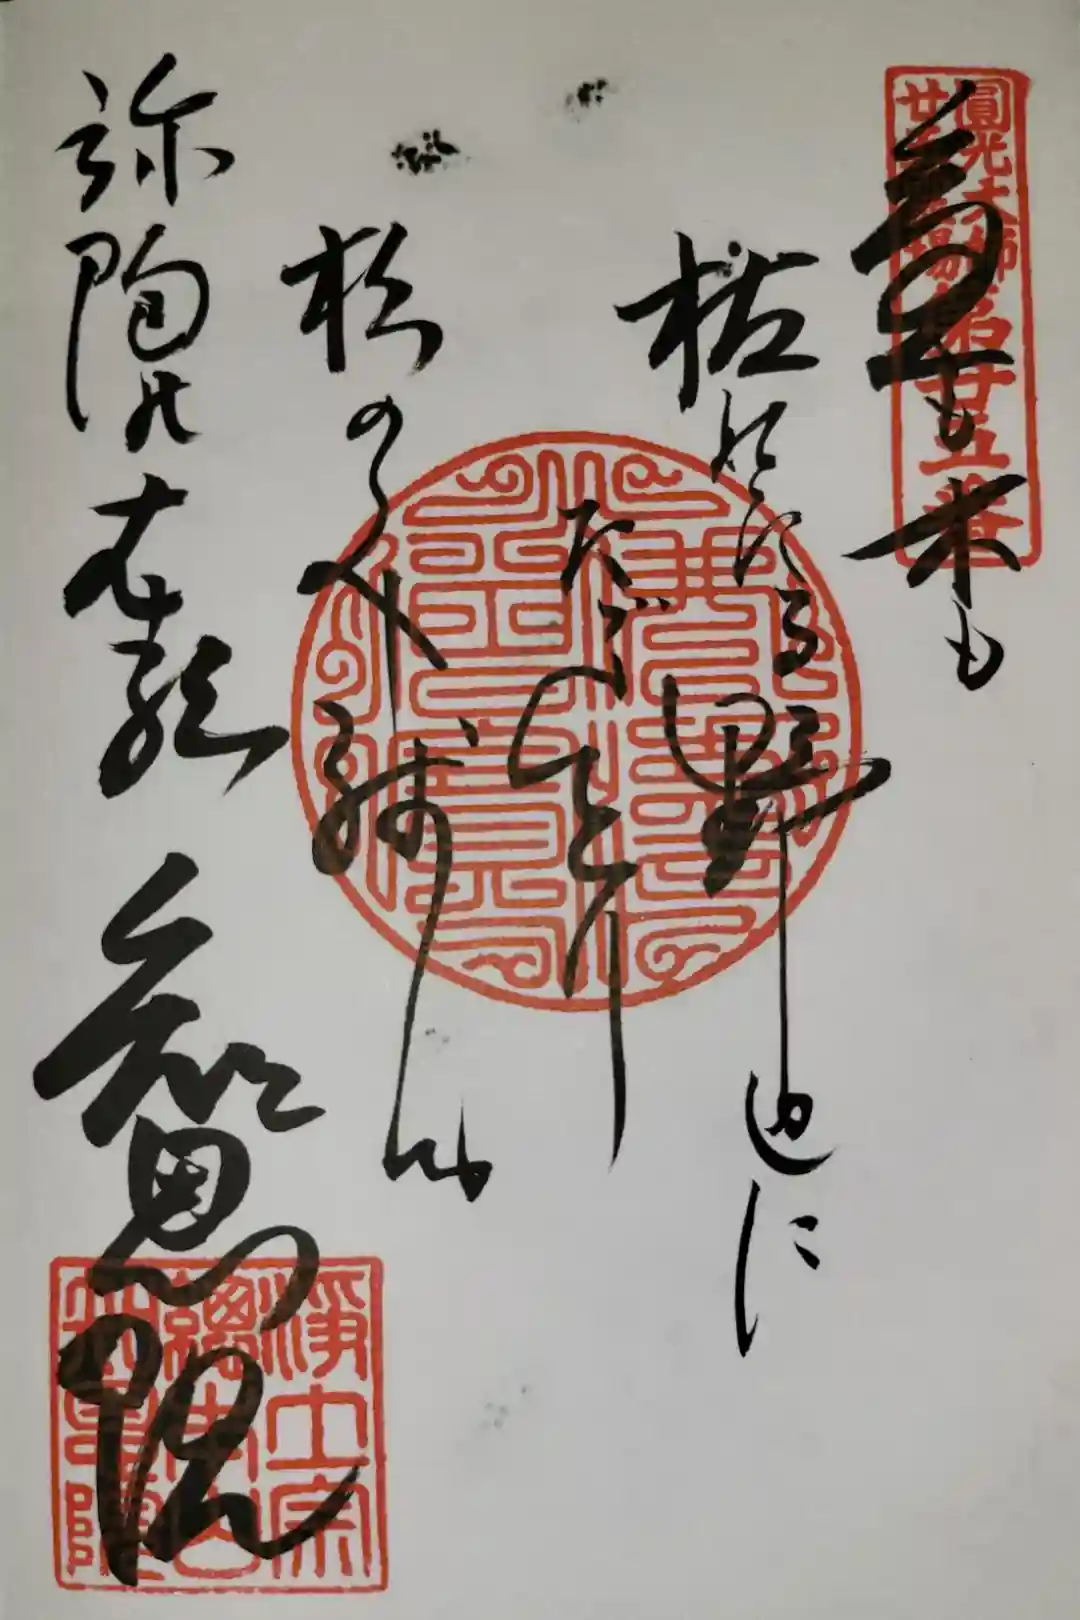 圓光大師
廿五霊場
第廿五番
草も木も
枯れたる野辺に
たゞひとり
松のみ残る
弥陀の本願
知恩院
淨土宗
總本山
知恩院